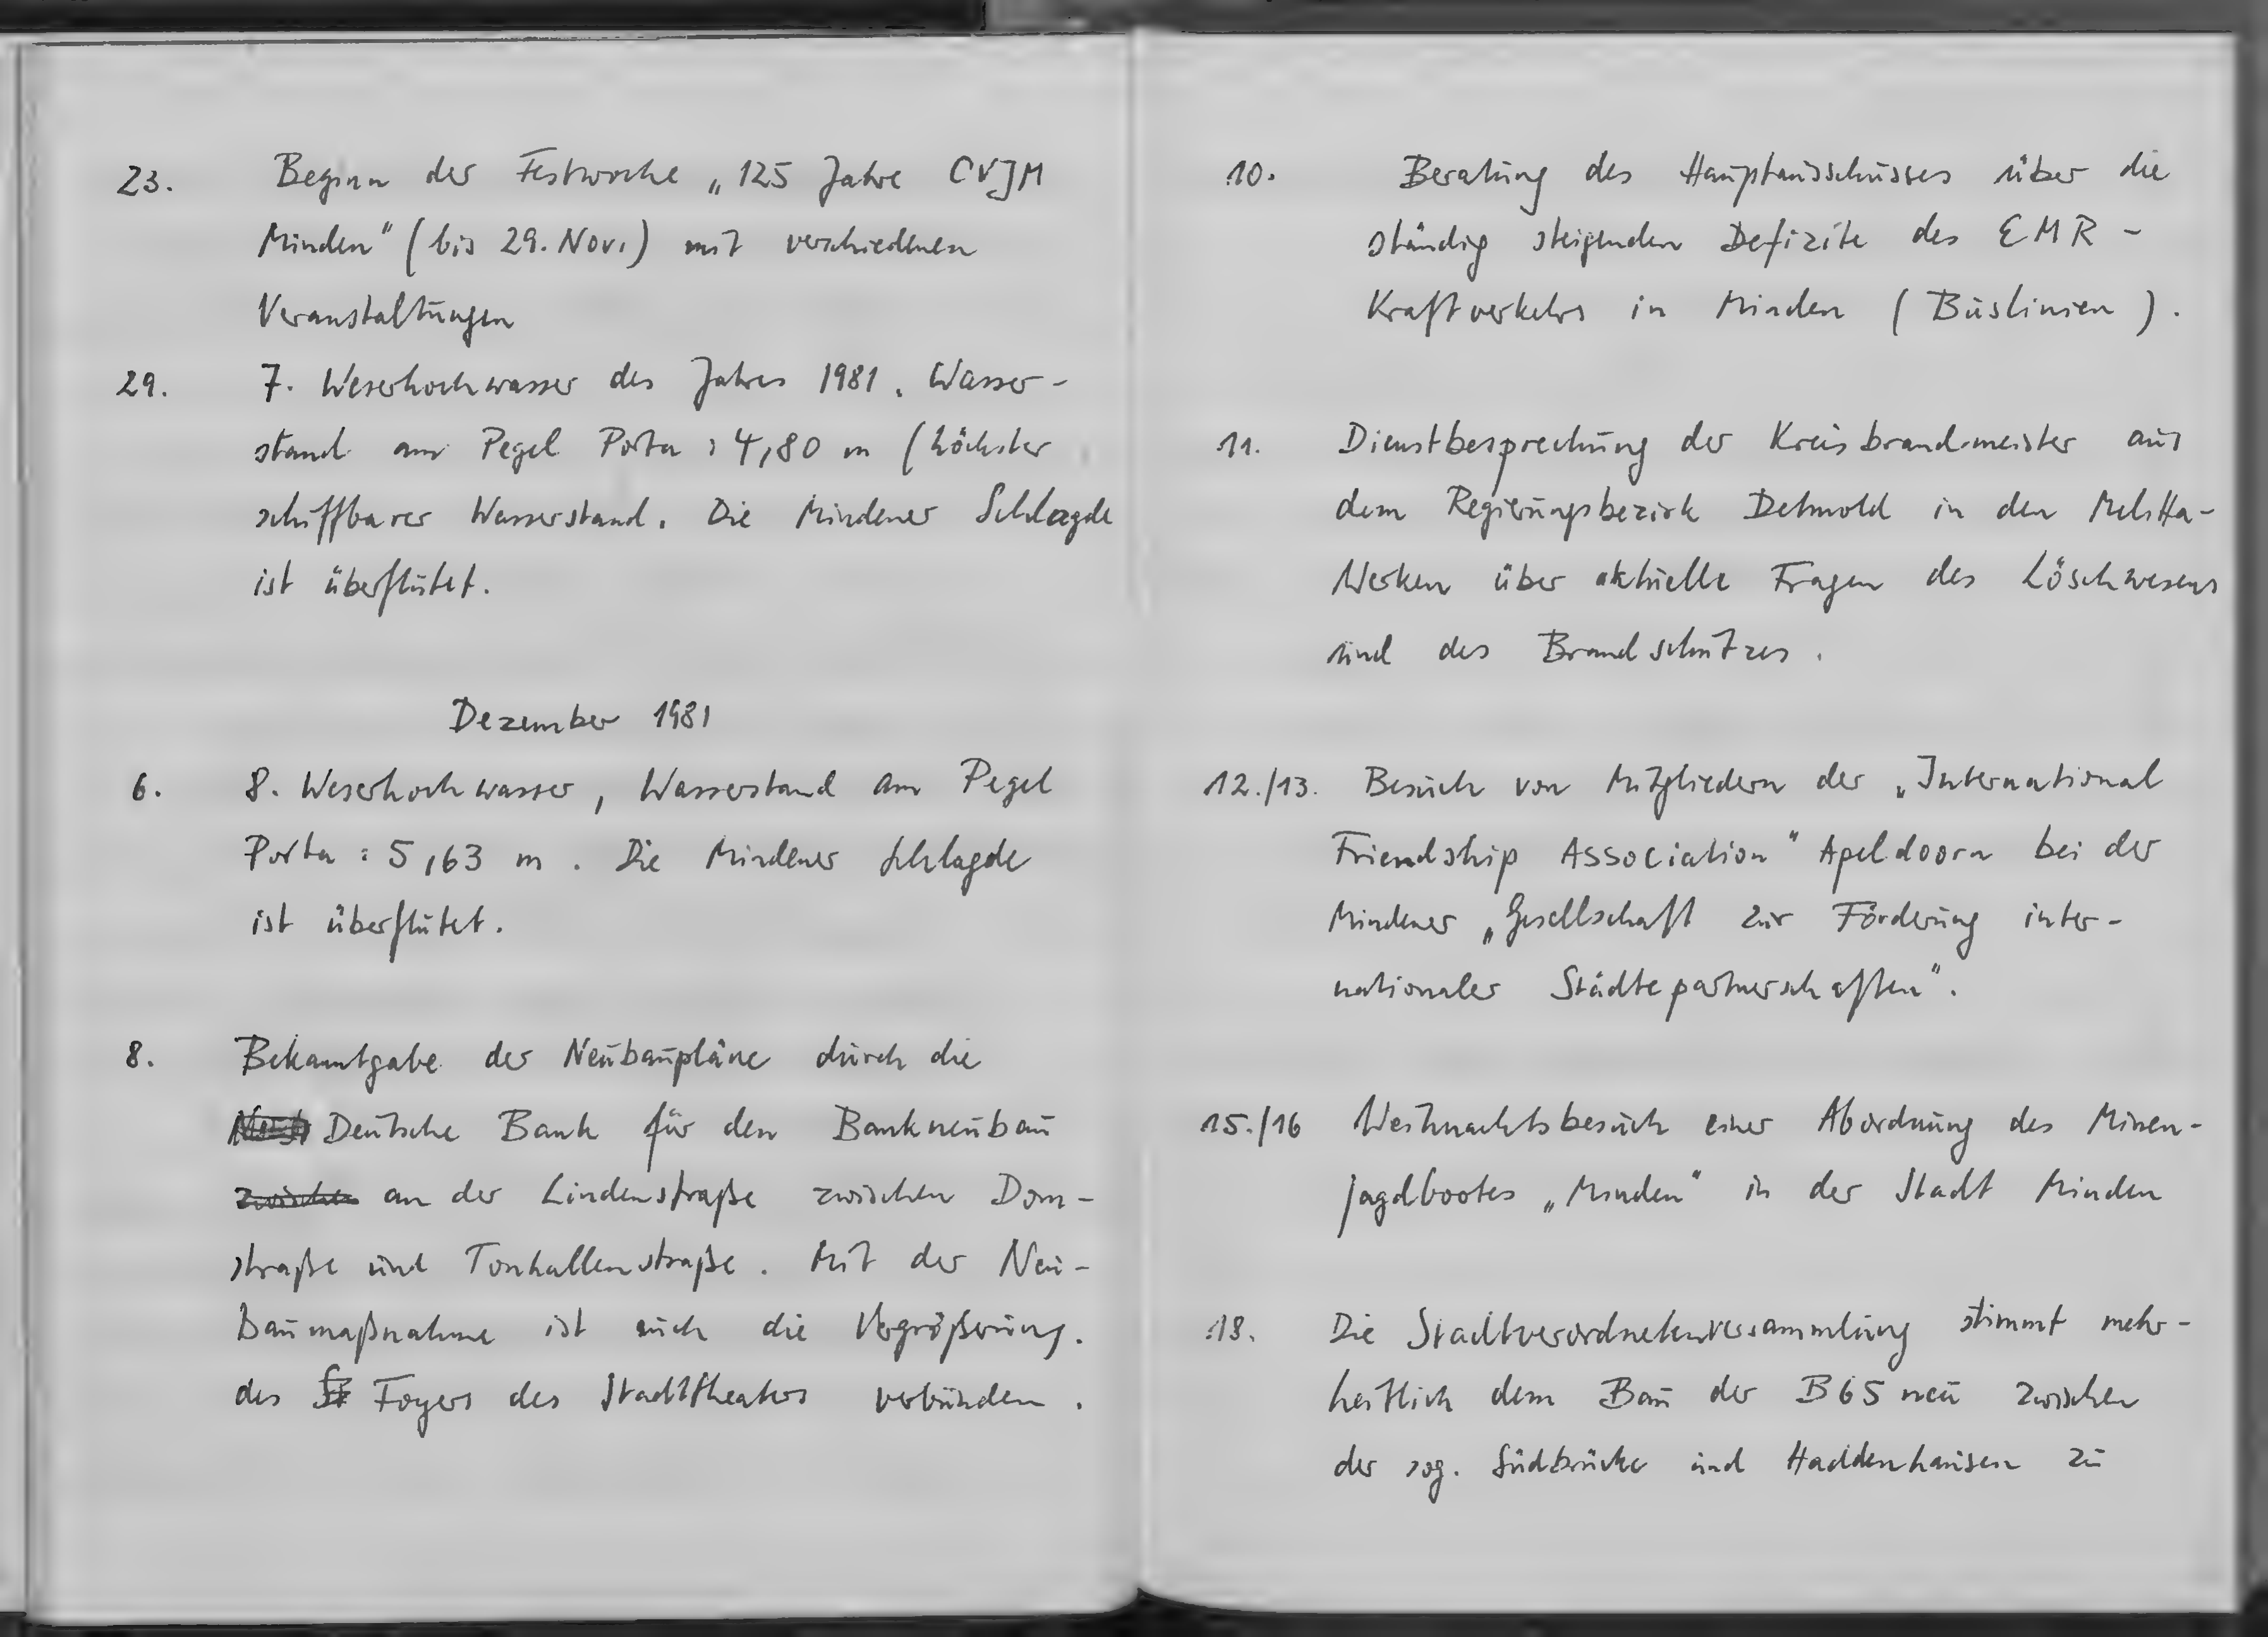 23. Beginn der Festwoche „125 Jahre CVJM
Minden" (bis 29. Nov.) mit verschiedenen
Veranstaltungen
29. 7. Weserhochwasser des Jahres 1981. Wasser-
stand am Pegel Porta: 4,80 m (höchster
schiffbarer Wasserstand. Die Mindener Schlagde
ist überflutet.
Dezember 1981
6. 8. Weserhochwasser, Wasserstand am Pegel
Porta: 5,63 m. Die Mindener Schlagde
ist überflutet.
8. Bekanntgabe der Neubaupläne durch die
Deutsche Bank für den Bankneubau
zwischen an der Lindenstraße zwischen Dom-
straße und Tonhallenstraße. Mit der Neu-
baumaßnahme ist auch die Vergrößerung
des St Foyers des Stadttheaters verbunden.
10. Beratung des Hauptausschusses über die
ständig steigenden Defizite des EMR-
Kraftverkehrs in Minden (Buslinien).
11. Dienstbesprechung der Kreisbrandmeister aus
dem Regierungsbezirk Detmold in den Melitta-
Werken über aktuelle Fragen des Löschwesens
und des Brandschutzes.
12./13. Besuch von Mitgliedern der „International
Friendship Association" Apeldoorn bei der
Mindener „Gesellschaft zur Förderung inter-
nationaler Städtepartnerschaften".
15./16 Weihnachtsbesuch einer Abordnung des Minen-
jagdbootes „Minden" in der Stadt Minden
18. Die Stadtverordnetenversammlung stimmt mehr-
heitlich dem Bau der B65 neu zwischen
der sog. Südbrücke und Haddenhausen zu